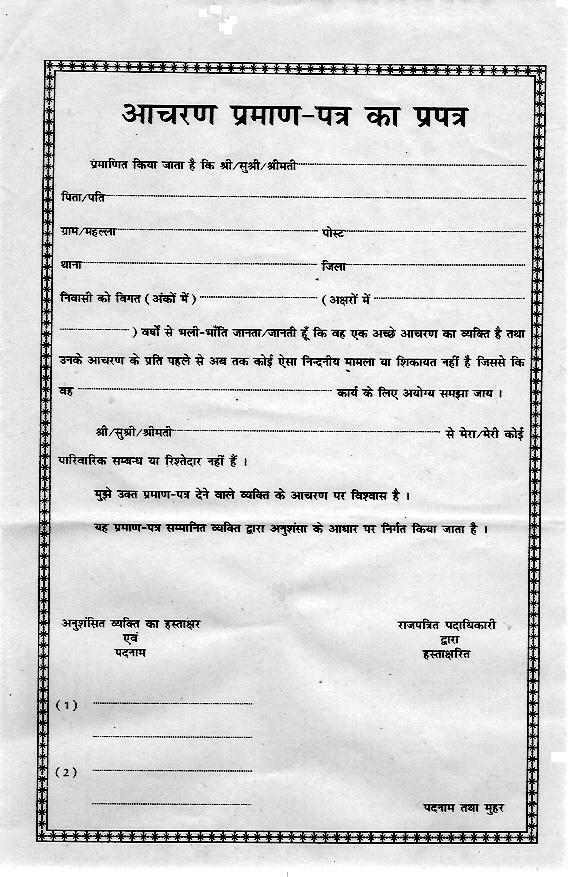 आचरण प्रमाण-पत्र का प्रपत्र
प्रमाणित किया जाता है कि श्री/सुश्री/श्रीमती
पिता/पति
ग्राम/महल्ला पोस्ट
थाना जिला
निवासी को विगत (अंकों में) (अक्षरों में
) वर्षों से भली-भाँति जानता/जानती हूँ कि वह एक अच्छे आचरण का व्यक्ति है तथा
उनके आचरण के प्रति पहले से अब तक कोई ऐसा निन्दनीय मामला या शिकायत नहीं है जिससे कि
वह कार्य के लिए अयोग्य समझा जाय ।
श्री/सुश्री/श्रीमती से मेरा/मेरी कोई
पारिवारिक सम्बन्ध या रिश्तेदार नहीं हैं ।
मुझे उक्त प्रमाण-पत्र देने वाले व्यक्ति के आचरण पर विश्वास है ।
यह प्रमाण-पत्र सम्मानित व्यक्ति द्वारा अनुशंसा के आधार पर निर्गत किया जाता है ।
अनुशंसित व्यक्ति का हस्ताक्षर
एवं
पदनाम
राजपत्रित पदाधिकारी
द्वारा
हस्ताक्षरित
(1)
(2)
पदनाम तथा मुहर